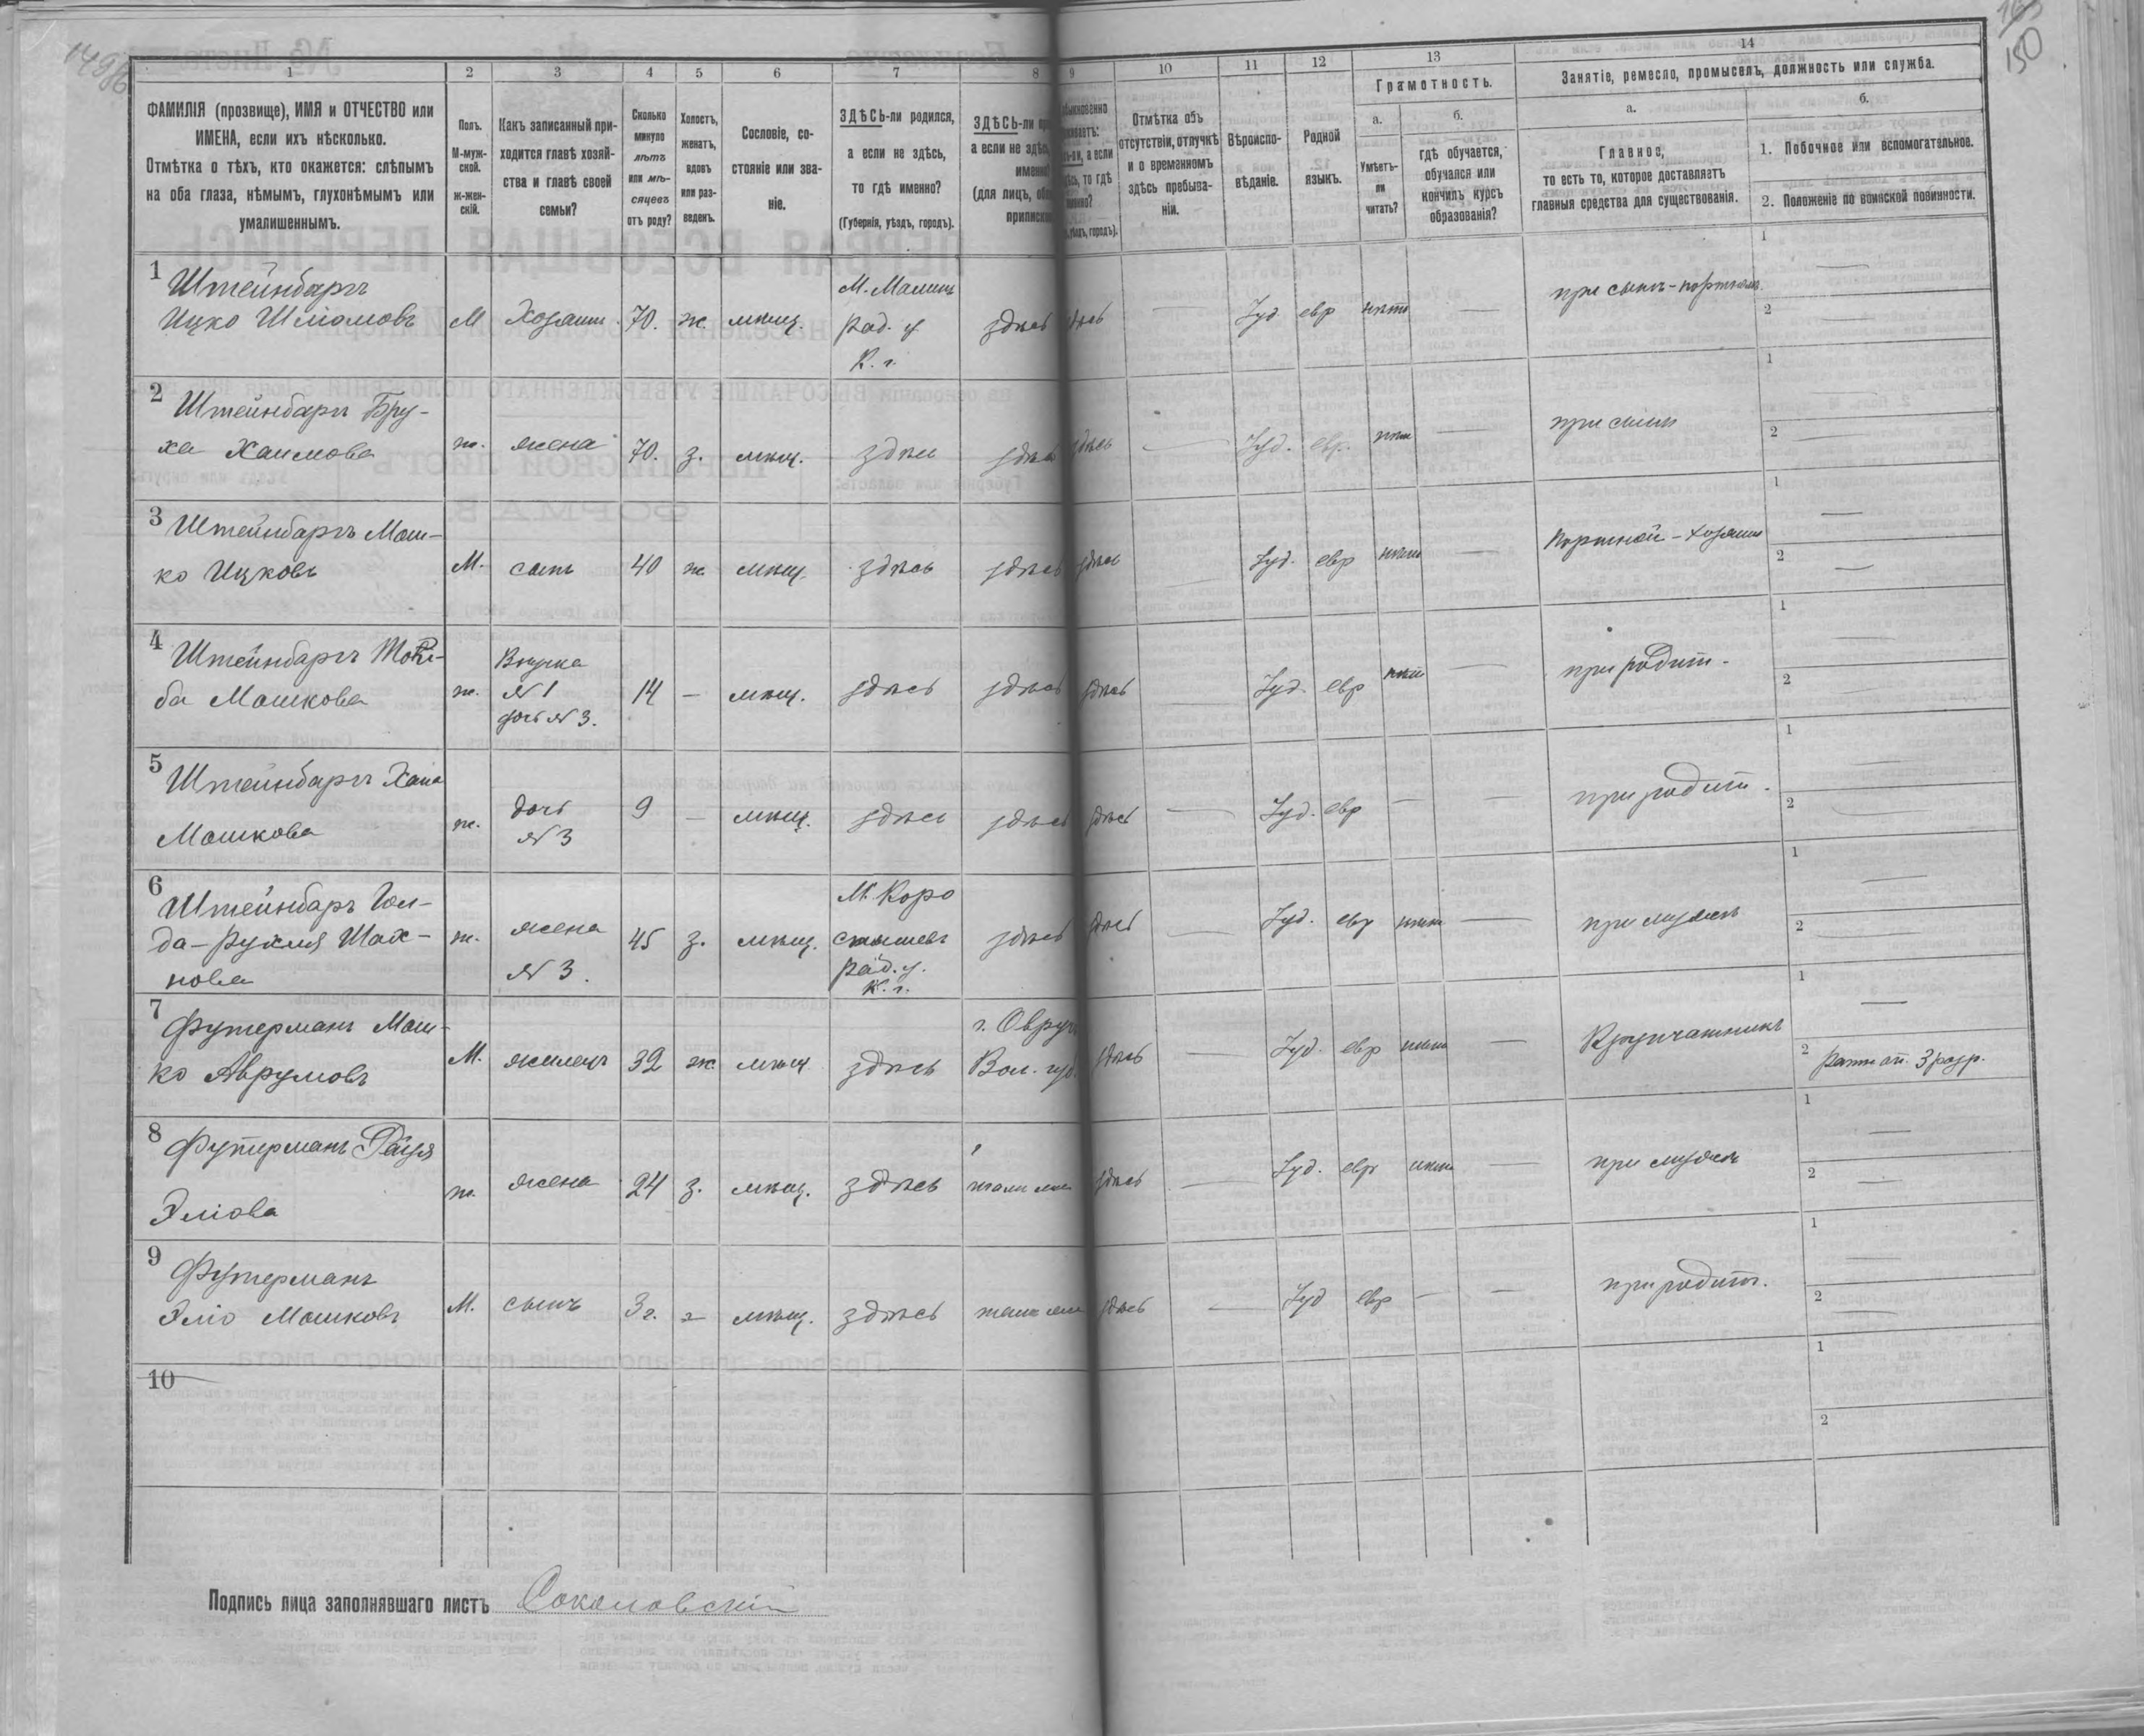 149об
150
1
2
3
4
5
6
7
8
9
10
11
12
13
14
ФАМИЛІЯ (прозвище), ИМЯ и ОТЧЕСТВО или
ИМЕНА, если ихъ нѣсколько.
Отмѣтка о тѣхъ, кто окажется: слѣпымъ
на оба глаза, нѣмымъ, глухонѣмымъ или
умалишеннымъ.
Полъ.
М-муж-
ской.
ж-жен-
скій.
Какъ записанный при-
ходится главѣ хозяй-
ства и главѣ своей
семьи?
Сколько
минуло
лѣтъ
или мѣ-
сяцевъ
отъ роду?
Холостъ,
женатъ,
вдовъ
или раз-
веденъ.
Сословіе, со-
стояніе или зва-
ніе.
ЗДѢСЬ-ли родился,
а если не здѣсь,
то гдѣ именно?
(Губернія, уѣздъ, городъ).
ЗДѢСЬ-ли
а если не здѣсь,
именно
(для лицъ,
приписки
, а если
то гдѣ
уѣздъ, городъ).
Отмѣтка объ
отсутствіи, отлучкѣ
и о временномъ
здѣсь пребыва-
ніи.
Вѣроиспо-
вѣданіе.
Родной
языкъ.
Грамотность.
а.
Умѣетъ-
ли
читать?
б.
гдѣ обучается,
обучался или
кончилъ курсъ
образованія?
Занятіе, ремесло, промыселъ, должность или служба.
а.
Главное,
то есть то, которое доставляетъ
главныя средства для существованія.
б.
1. Побочное или вспомогательное.
2. Положеніе по воинской повинности.
1 Штейнбаргъ
Ицко Шліомовъ М Хозяинъ 70. ж. мѣщ. М. Малинъ Рад. у. К. г. здѣсь здѣсь — Іуд евр нѣтъ — при сынѣ-портномъ 1 — 2 —
2 Штейнбаргъ Бру-
ха Хаимова ж. жена 70. з. мѣщ. здѣсь здѣсь здѣсь — Іуд. евр. нѣтъ — при сынѣ 1 — 2 —
3 Штейнбаргъ Мош-
ко Ицковъ М. сынъ 40 ж. мѣщ. здѣсь здѣсь здѣсь — Іуд. евр нѣтъ — Портной-хозяинъ 1 — 2 —
4 Штейнбаргъ
ба Мошкова ж. Внучка N 1 дочь N 3. 14 — мѣщ. здѣсь здѣсь здѣсь — Іуд. евр нѣтъ — при родит. 1 — 2 —
5 Штейнбаргъ Хана
Мошкова ж. дочь N 3 9 — мѣщ. здѣсь здѣсь здѣсь — Іуд. евр — — при родит. 1 — 2 —
6 Штейнбаргъ Гол-
да-Рухля Шах-
нова ж. жена N 3. 45 з. мѣщ. М. Коро
стышевъ Рад. у. К. г. здѣсь здѣсь — Іуд. евр нѣтъ — при мужѣ 1 — 2 —
7 Футерманъ Мош-
ко Аврумовъ М. жилецъ 32 ж. мѣщ здѣсь г. Овручъ Вол. губ. здѣсь — Іуд. евр нѣтъ — 1 — 2 Ратн. оп. 3 разр.
8 Футерманъ
Эліова ж. жена 24 з. мѣщ. здѣсь тамъ же здѣсь — Іуд. евр нѣтъ — при мужѣ 1 — 2 —
9 Футерманъ
Эліо Мошковъ М. сынъ 3 г. — мѣщ. здѣсь тамъ же здѣсь — Іуд евр — — при родит. 1 — 2 —
10 1 2
Подпись лица заполнявшаго листъ Соколовскій